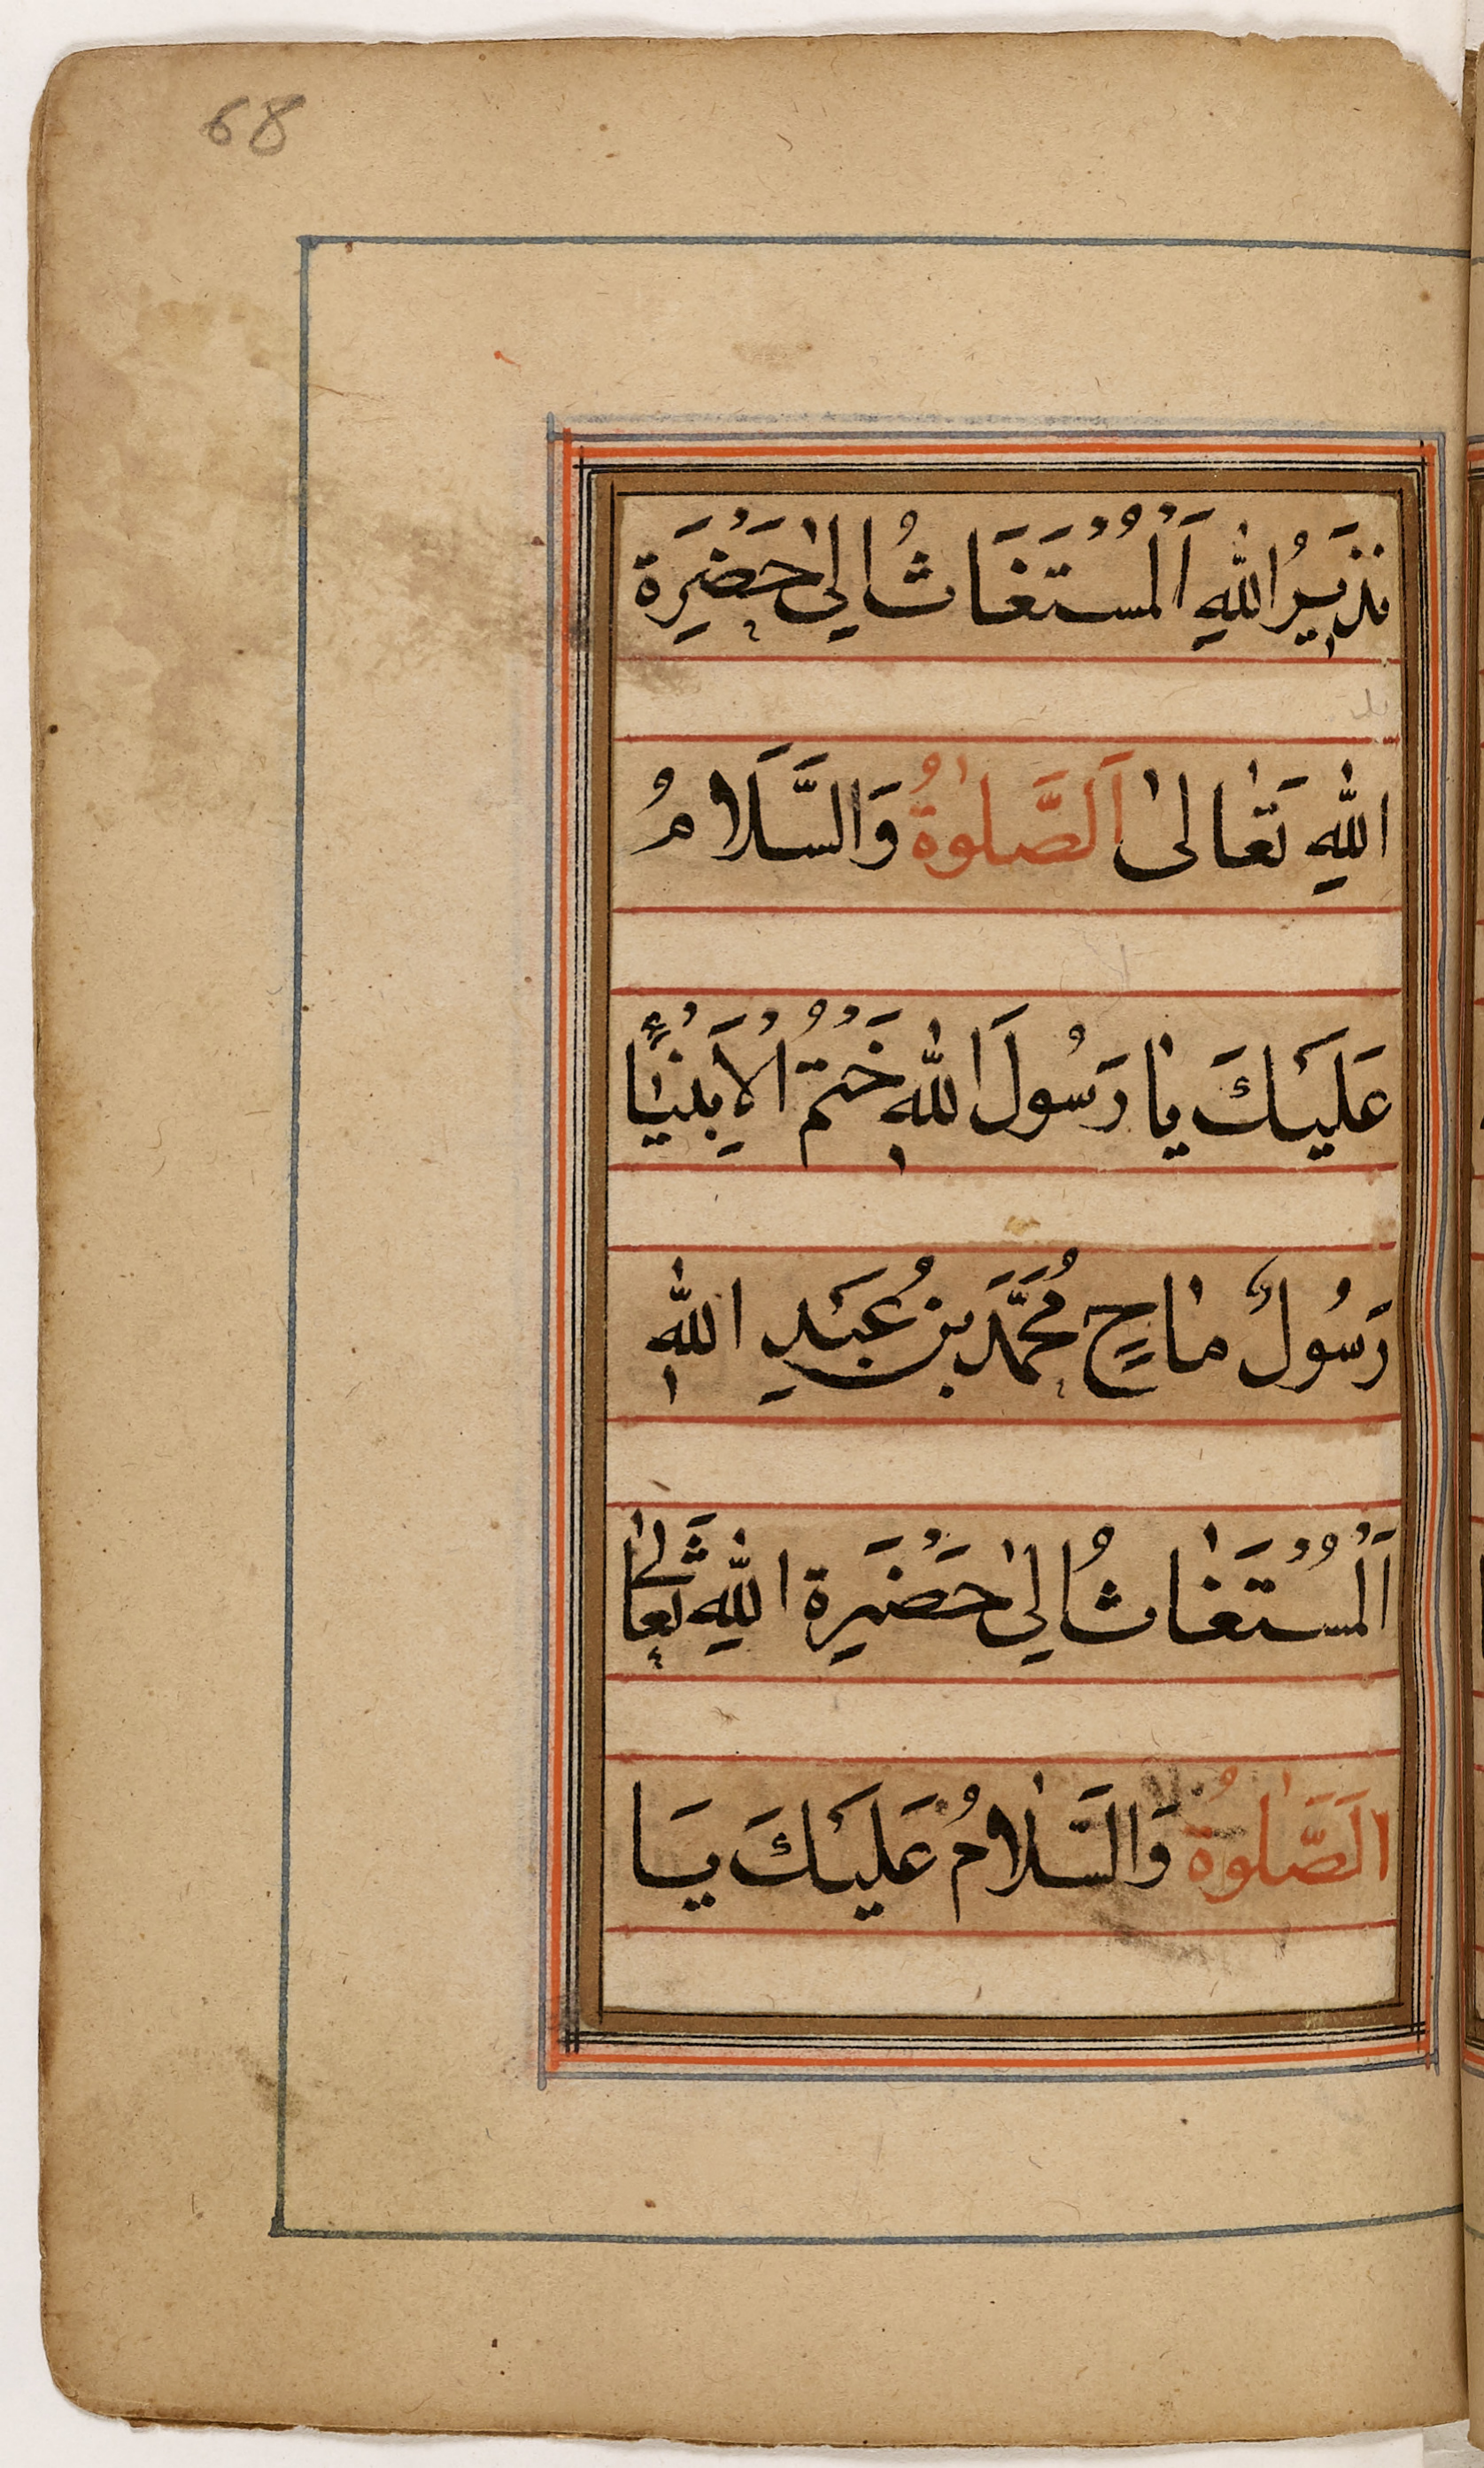 68
نَذِيرُ اللهِ اَلْمُسْتَغَاثُ اِلىٰ حَضْرَةِ
اللهِ تَعَالىٰ اَلصَّلٰوةُ وَالسَّلَامُ
عَلَيْكَ يَا رَسُولَ اللهِ خَتْمُ الْاَنْبِيَا
رَسُولٌ مَاحٍ مُحَمَّدُ بْنُ عَبْدِ اللهِ
اَلْمُسْتَغَاثُ اِلىٰ حَضْرَةِ اللهِ تَعَالىٰ
الَصَّلٰوةُ وَالسَّلَامُ عَلَيْكَ يَا